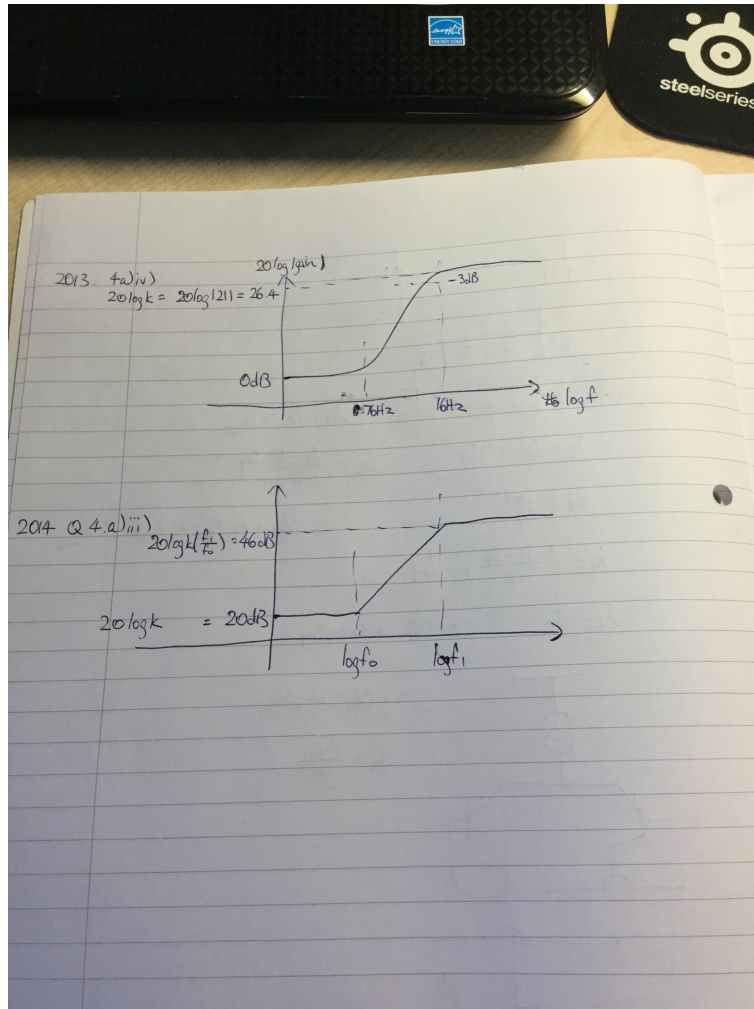 ENERGY STAR
steelseries
20log|gain|
2013. 4a)iv)
20logk = 20log|21| = 26.4
-3dB
0dB
0.76Hz
16Hz
log f
2014 Q 4.a)iii)
20logk(f₁/f₀) = 46dB
20logk = 20dB
logf₀
logf₁